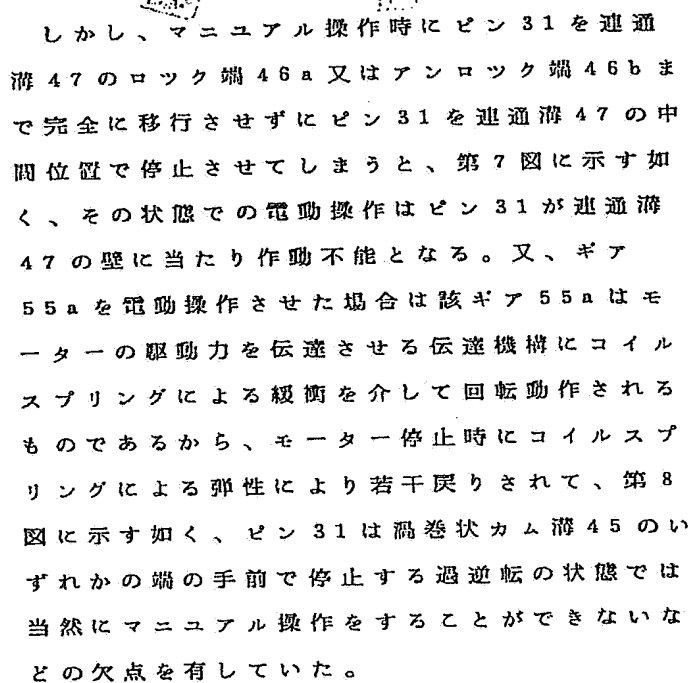 しかし、マニユアル操作時にピン31を連通
溝47のロツク端46a又はアンロツク端46bま
で完全に移行させずにピン31を連通溝47の中
間位置で停止させてしまうと、第7図に示す如
く、その状態での電動操作はピン31が連通溝
47の壁に当たり作動不能となる。又、ギア
55aを電動操作させた場合は該ギア55aはモ
ーターの駆動力を伝達させる伝達機構にコイル
スプリングによる緩衝を介して回転動作される
ものであるから、モーター停止時にコイルスプ
リングによる弾性により若干戻りされて、第8
図に示す如く、ピン31は渦巻状カム溝45のい
ずれかの端の手前で停止する過逆転の状態では
当然にマニユアル操作をすることができないな
どの欠点を有していた。